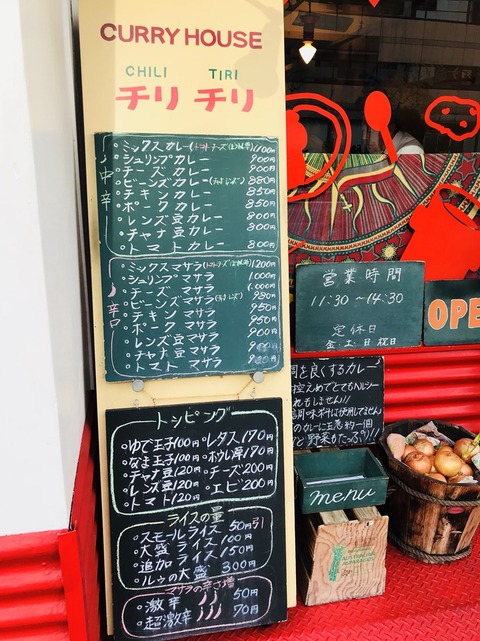 CURRY HOUSE
CHILI TIRI
チリ チリ
中辛
ミックスカレー 1100円
シュリンプカレー 900円
チーズ カレー 900円
ビーンズカレー 880円
チキン カレー 850
ポーク カレー 850
レンズ豆カレー 800
チャナ豆カレー 800
トマト カレー 800
辛口
ミックスマサラ 1200円
シュリンプマサラ 1000円
チーズ マサラ 1,000円
ビーンズマサラ 980
チキン マサラ 950
ポーク マサラ 950
レンズ豆マサラ 900
チャナ豆マサラ
トマト マサラ
トッピング
ゆで玉子100円 レタス170円
なま玉子100円 ホウレン草170
チャナ豆120円 チーズ200円
レンズ豆120円 エビ200円
トマト120円
ライスの量
スモールライス 50円引
大盛 ライス 100円
追加 ライス 150円
ルゥの大盛 300円
マサラの辛さ増
激辛 50円
超激辛 70円
営業時間
11:30~14:30
定休日
金・土・日・祝日
OPE
調を良くするカレー
控えめでとてもヘルシー
れもしません!!
調味料は使用してません
のカレーに玉葱約一個
ど野菜もたっぷり!!
menu